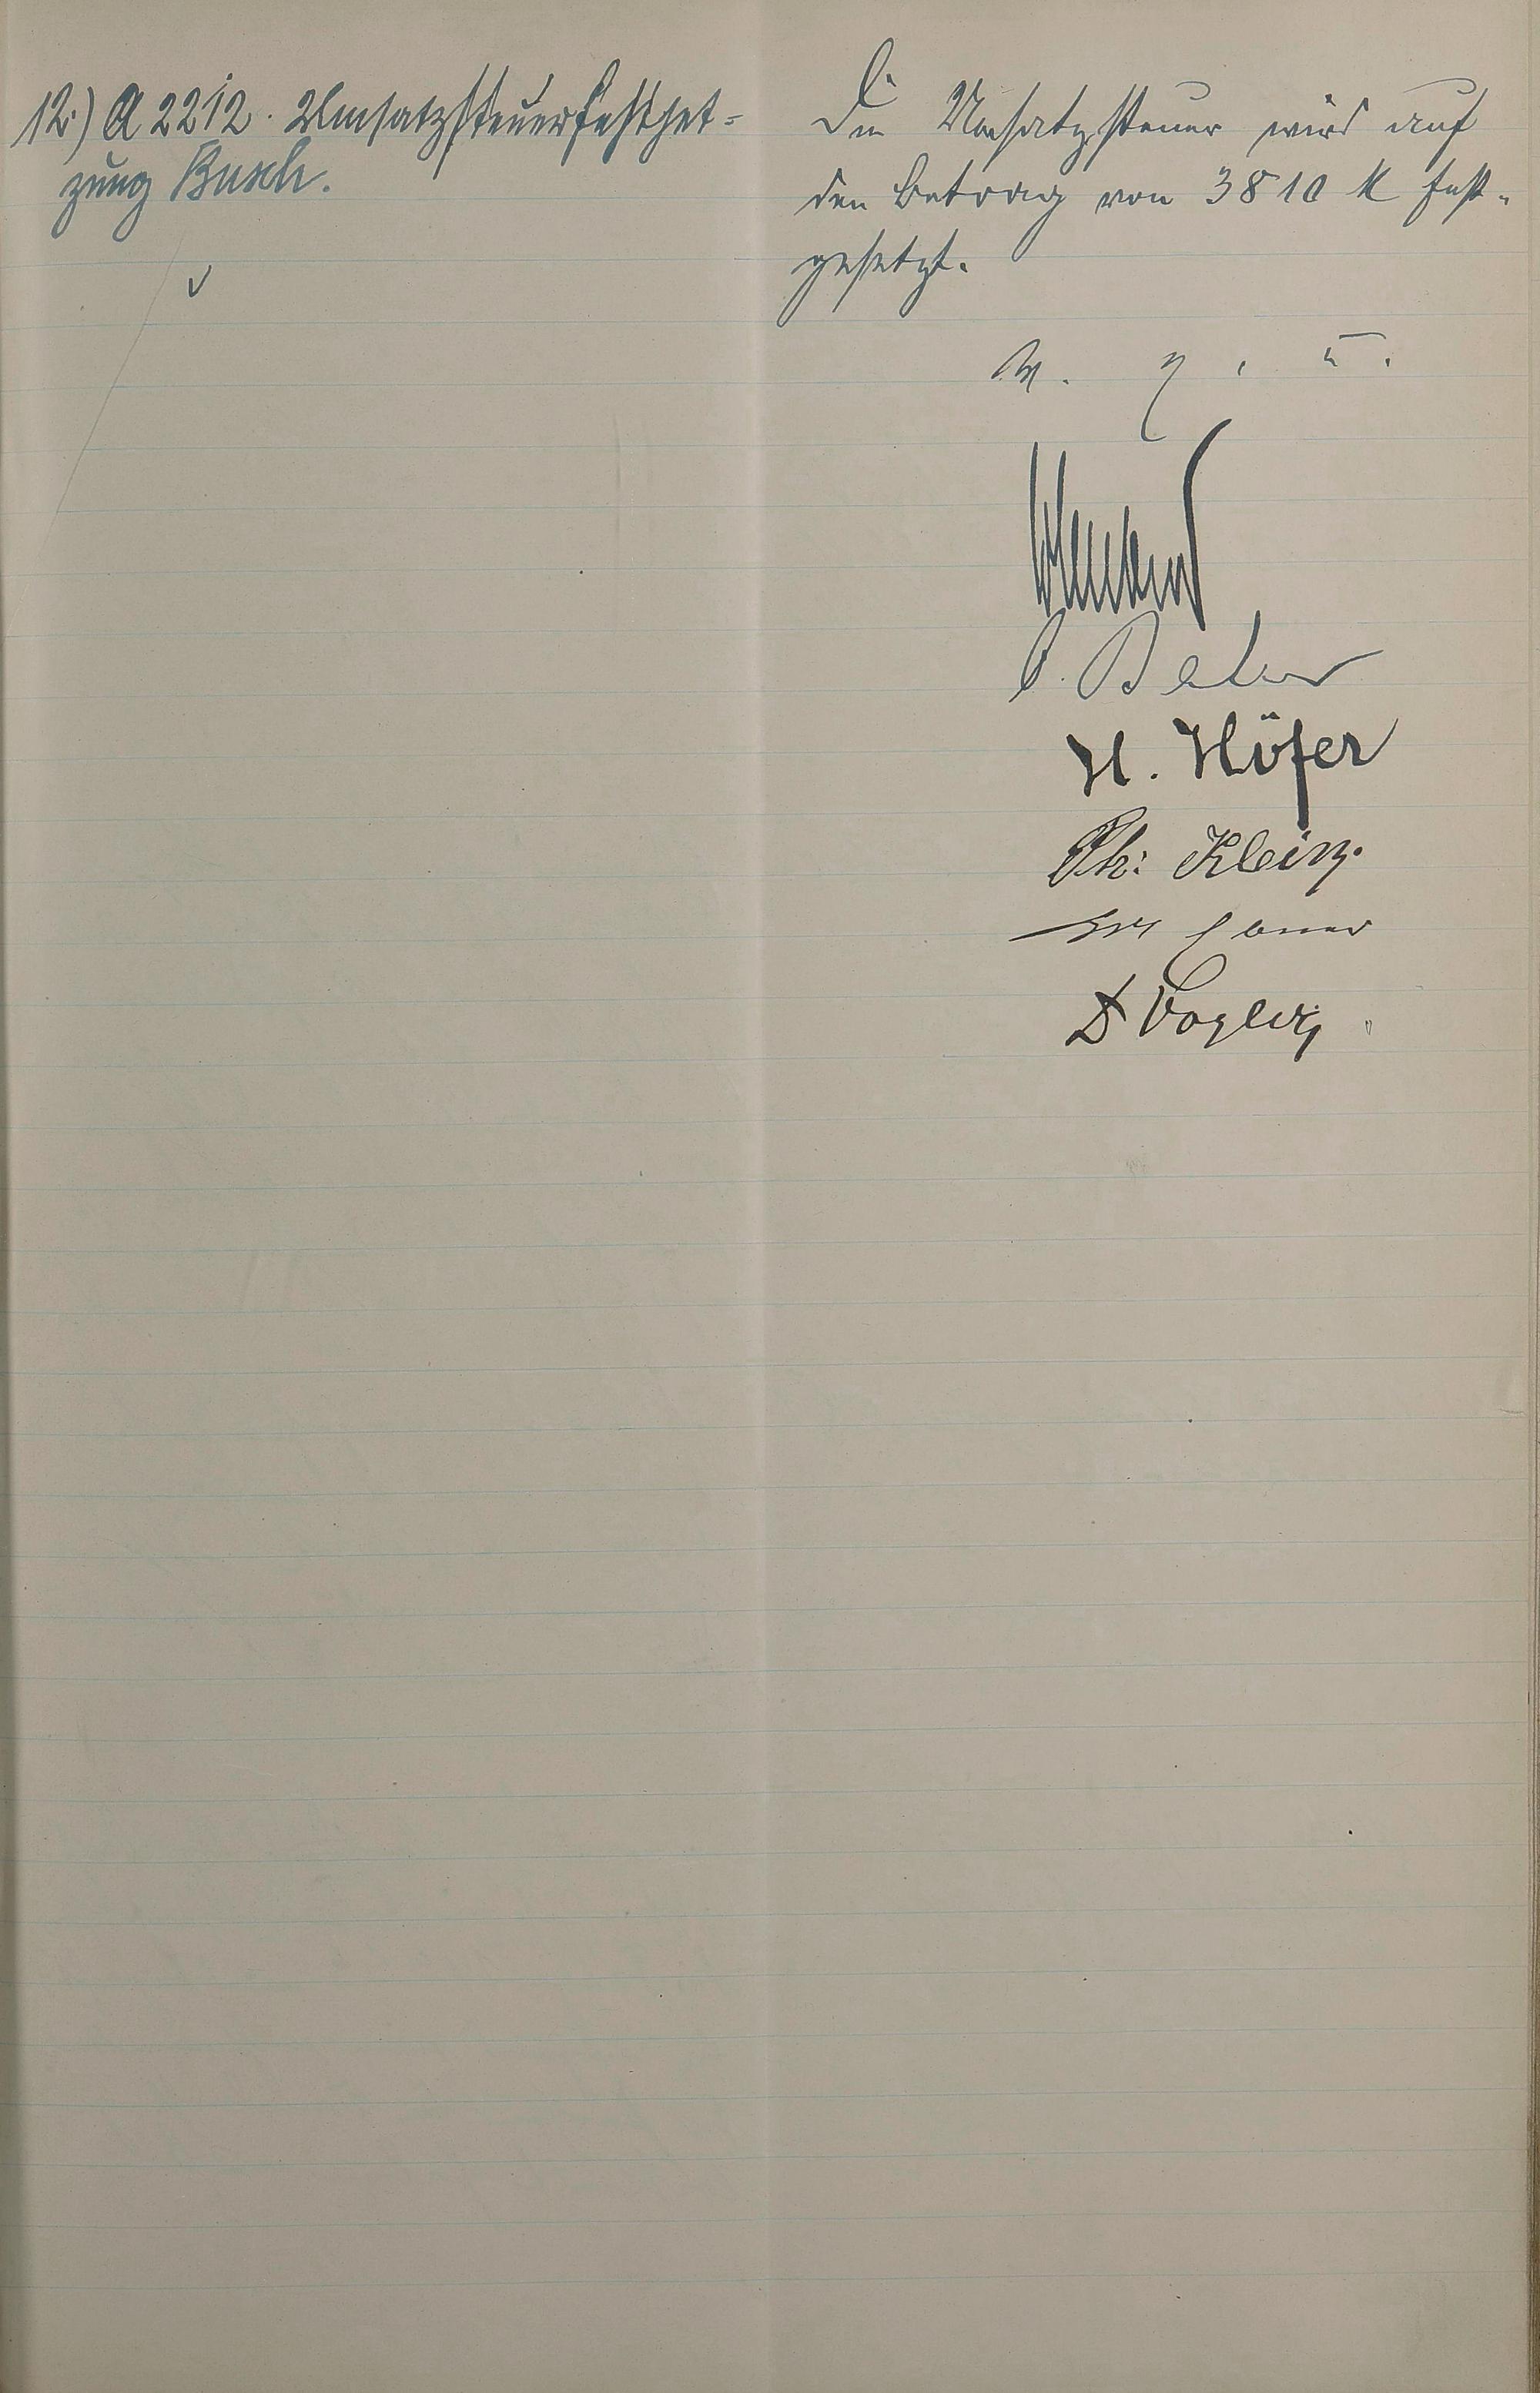 12.) A 2212. Umsatzsteuerfestset=
zung Busch.
Die Umsatzsteuer wird auf
den Betrag von 3810 M fest-
gesetzt.
v. g. u.
H. Höfer
Ph: Klein.
D Vogler